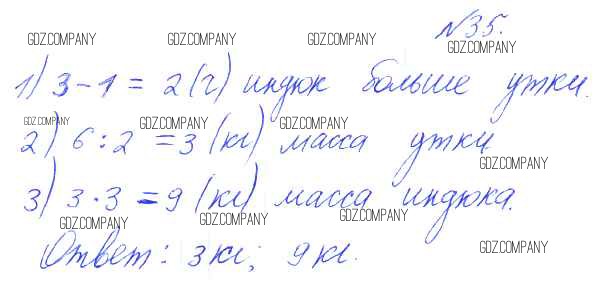 №35.
GDZ.COMPANY GDZ.COMPANY GDZ.COMPANY GDZ.COMPANY
1) 3 - 1 = 2 (г) индюк больше утки.
GDZ.COMPANY GDZ.COMPANY GDZ.COMPANY
2) 6 : 2 = 3 (кг) масса утки
GDZ.COMPANY
3) 3 · 3 = 9 (кг) масса индюка.
GDZ.COMPANY GDZ.COMPANY GDZ.COMPANY
Ответ: 3 кг; 9 кг.
GDZ.COMPANY